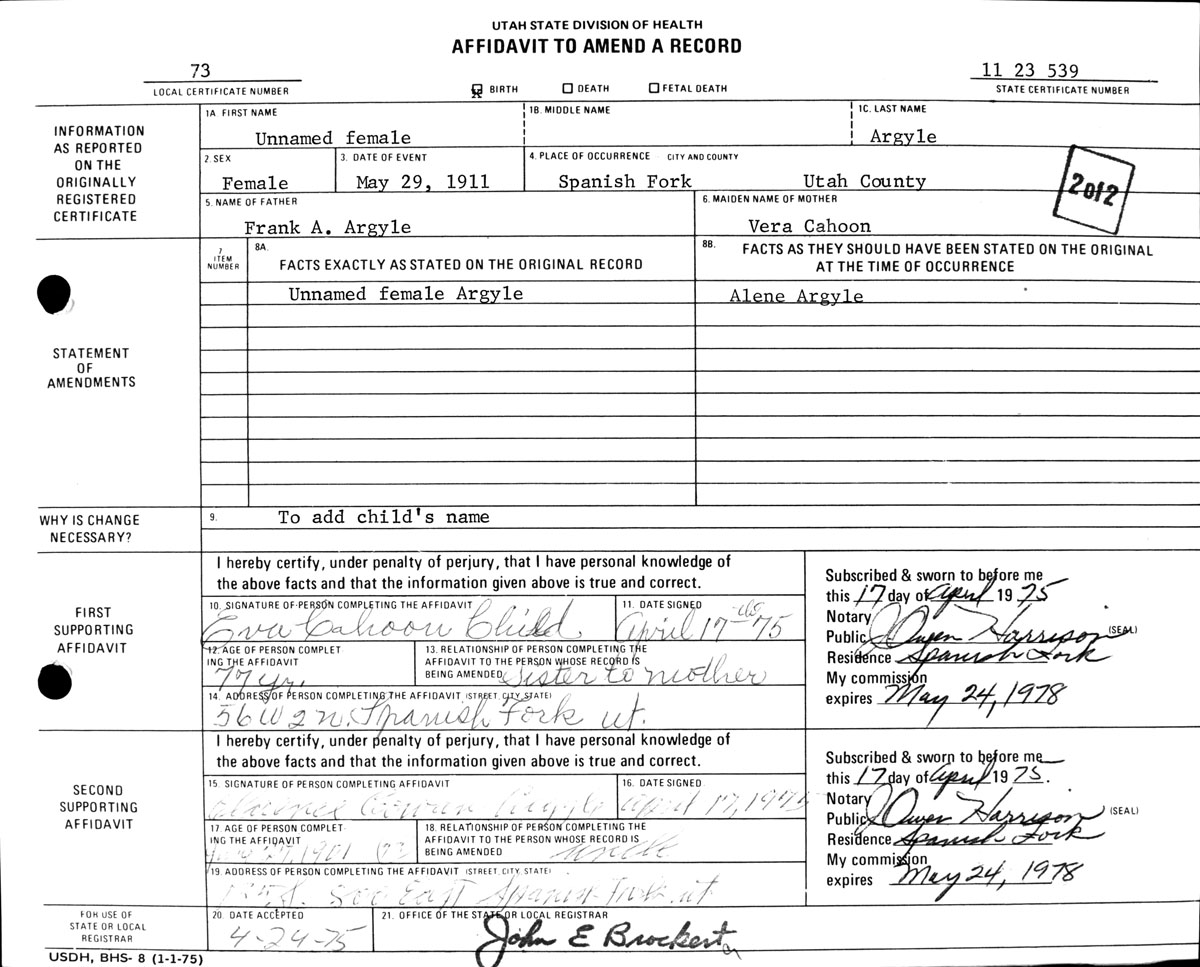 UTAH STATE DIVISION OF HEALTH
AFFIDAVIT TO AMEND A RECORD
73
LOCAL CERTIFICATE NUMBER
BIRTH DEATH FETAL DEATH
11 23 539
STATE CERTIFICATE NUMBER
INFORMATION
AS REPORTED
ON THE
ORIGINALLY
REGISTERED
CERTIFICATE
1A FIRST NAME
Unnamed female
1B. MIDDLE NAME
1C. LAST NAME
Argyle
2. SEX
Female
3. DATE OF EVENT
May 29, 1911
4. PLACE OF OCCURRENCE - CITY AND COUNTY
Spanish Fork Utah County
2 of 2
5. NAME OF FATHER
Frank A. Argyle
6. MAIDEN NAME OF MOTHER
Vera Cahoon
STATEMENT
OF
AMENDMENTS
7.
ITEM
NUMBER
8A.
FACTS EXACTLY AS STATED ON THE ORIGINAL RECORD
8B.
FACTS AS THEY SHOULD HAVE BEEN STATED ON THE ORIGINAL
AT THE TIME OF OCCURRENCE
Unnamed female Argyle
Alene Argyle
WHY IS CHANGE
NECESSARY?
9. To add child's name
FIRST
SUPPORTING
AFFIDAVIT
I hereby certify, under penalty of perjury, that I have personal knowledge of
the above facts and that the information given above is true and correct.
10. SIGNATURE OF PERSON COMPLETING THE AFFIDAVIT
Eva Cahoon Child
11. DATE SIGNED
April 17 75
12. AGE OF PERSON COMPLET
ING THE AFFIDAVIT
77 yr.
13. RELATIONSHIP OF PERSON COMPLETING THE
AFFIDAVIT TO THE PERSON WHOSE RECORD IS
BEING AMENDED Sister to mother
14. ADDRESS OF PERSON COMPLETING THE AFFIDAVIT (STREET, CITY, STATE)
56 W 2 N. Spanish Fork ut.
Subscribed & sworn to before me
this 17 day of April 1975
Notary
Public J Owen Harrison (SEAL)
Residence Spanish Fork
My commission
expires May 24, 1978
SECOND
SUPPORTING
AFFIDAVIT
I hereby certify, under penalty of perjury, that I have personal knowledge of
the above facts and that the information given above is true and correct.
15. SIGNATURE OF PERSON COMPLETING AFFIDAVIT
Argyle
16. DATE SIGNED
April 17, 1975
17. AGE OF PERSON COMPLET
ING THE AFFIDAVIT
27, 1901 73
18. RELATIONSHIP OF PERSON COMPLETING THE
AFFIDAVIT TO THE PERSON WHOSE RECORD IS
BEING AMENDED Uncle
19. ADDRESS OF PERSON COMPLETING THE AFFIDAVIT (STREET, CITY, STATE)
East Spanish Fork ut
Subscribed & sworn to before me
this 17 day of April 1975.
Notary
Public J Owen Harrison (SEAL)
Residence Spanish Fork
My commission
expires May 24, 1978
FOR USE OF
STATE OR LOCAL
REGISTRAR
20. DATE ACCEPTED
4-24-75
21. OFFICE OF THE STATE OR LOCAL REGISTRAR
John E Brockert
USDH, BHS- 8 (1-1-75)